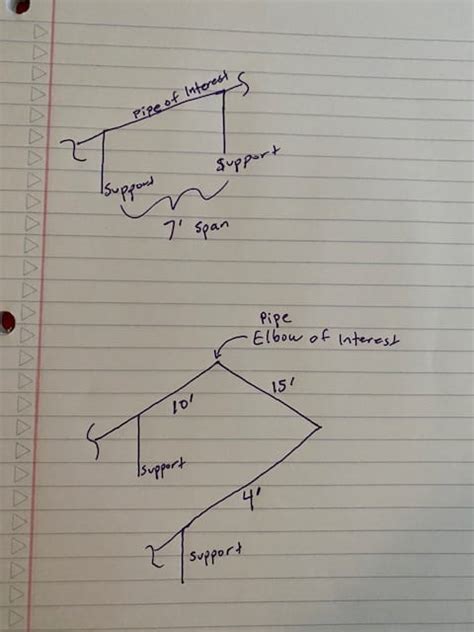 Pipe of Interest
Support
Support
7' Span
Pipe
Elbow of Interest
15'
10'
Support
4'
Support